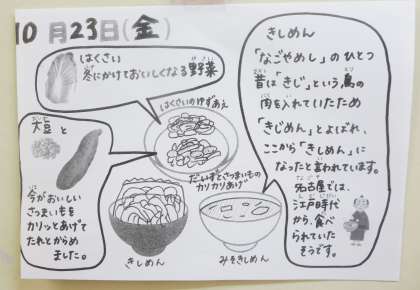 10月23日(金)
はくさい
冬にかけておいしくなる野菜
はくさいのゆずあえ
大豆と
今がおいしい
さつまいもを
カリッとあげて
たれとからめ
ました。
だいずとさつまいもの
カリカリあげ
きしめん
みそきしめん
きしめん
「なごやめし」のひとつ
昔は「きじ」という鳥の
肉を入れていたため
「きじめん」とよばれ、
ここから「きしめん」に
なったと言われています。
名古屋では、
江戸時代
から、食べ
られていた
そうです。